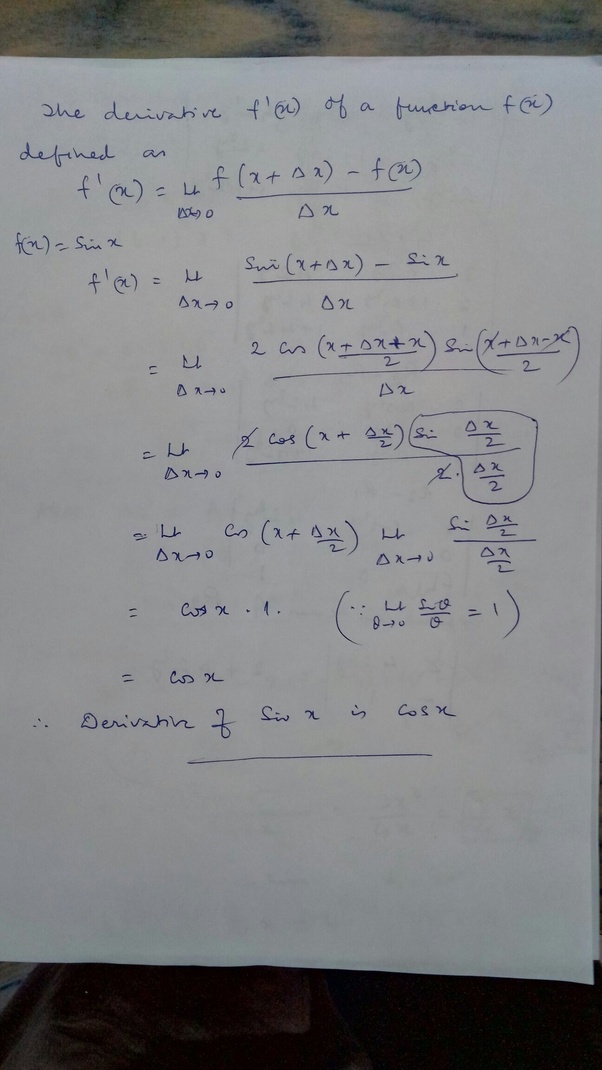 The derivative f'(x) of a function f(x)
defined as
f'(x) = Lt Δx→0 f(x + Δx) - f(x) / Δx
f(x) = Sin x
f'(x) = Lt Δx→0 Sin (x+Δx) - Sin x / Δx
= Lt Δx→0 2 Cos (x + Δx + x / 2) Sin (x + Δx - x / 2) / Δx
= Lt Δx→0 2 Cos (x + Δx/2) Sin Δx/2 / 2 . Δx/2
= Lt Δx→0 Cos (x + Δx/2) Lt Δx→0 Sin Δx/2 / Δx/2
= Cos x . 1. (∵ Lt θ→0 Sinθ/θ = 1)
= Cos x
∴ Derivative of Sin x is Cos x